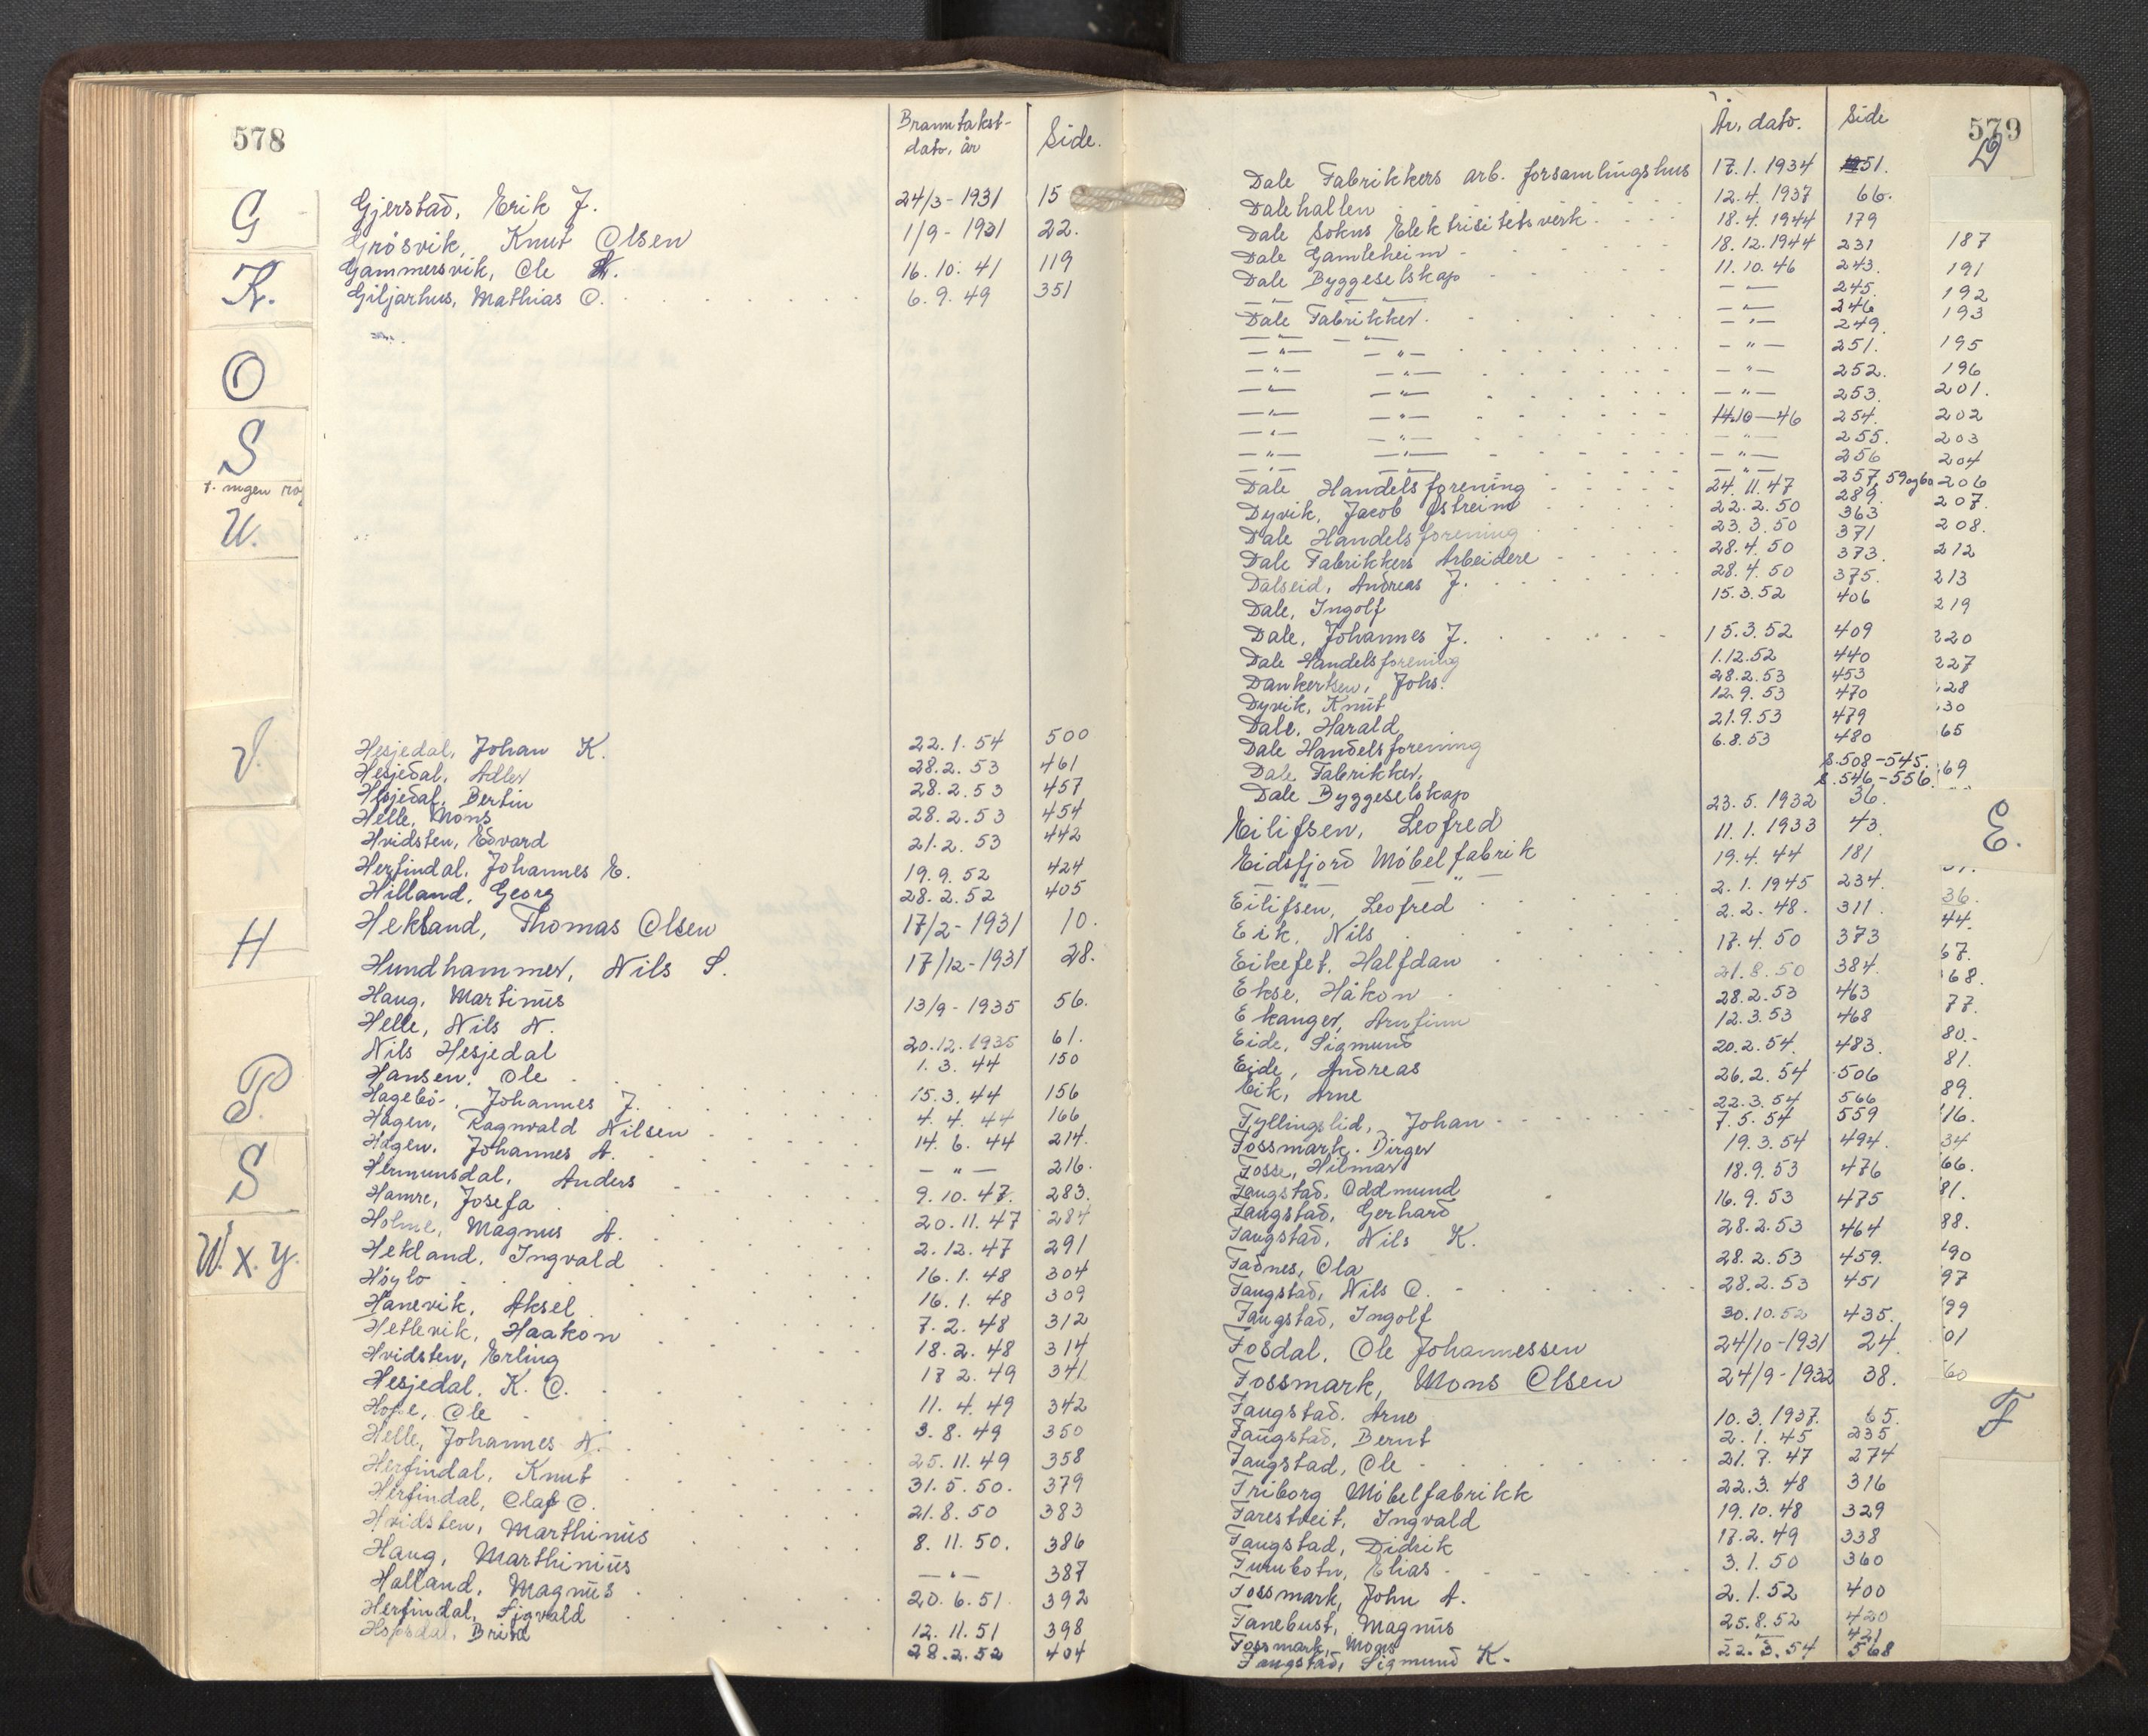 578
Branntakst-
dato, år
Side.
G
Gjerstad, Erik J. 24/3-1931 15
Grøsvik, Knut Olsen 1/9-1931 22.
K.
Gammersvik, Ole 16.10.41 119
Giljarhus, Mathias O. 6.9.49 351
O
S
U.
V.
Hesjedal, Johan K. 22.1.54 500
Hesjedal, Adler 28.2.53 461
Hesjedal, Bertin 28.2.53 457
Helle, Mons 28.2.53 454
Hvidsten, Edvard 21.2.53 442
Herfindal, Johannes E. 19.9.52 424
Hilland, Georg 28.2.52 405
H
Hekland, Thomas Olsen 17/2-1931 10.
Hundhammer, Nils S. 17/12-1931 28.
Haug, Martinus 13/9-1935 56.
Helle, Nils N. 20.12.1935 61.
Nils Hesjedal 1.3.44 150
Hansen, Ole 15.3.44 156
P.
Hagebö, Johannes J. 4.4.44 166
Hagen, Ragnvald Nilsen 14.6.44 214.
Hagen, Johannes A. — " — 216.
S
Hermunsdal, Anders 9.10.47. 283.
Hamre, Josefa 20.11.47 284
Holme, Magnus A. 2.12.47 291
W. x. y.
Hekland, Ingvald 16.1.48 304
Høylo 16.1.48 309
Hanevik, Aksel 7.2.48 312
Hetlevik, Haakon 18.2.48 314
Hvidsten, Erling 17 2.49 341
Hesjedal, K. O. 11.4.49 342
Ole 3.8.49 350
Helle, Johannes N. 25.11.49 358
Herfindal, Knut 31.5.50. 379
Herfindal, Olaf O. 21.8.50 383
Hvidsten, Marthinus 8.11.50. 386
Haug, Marthinius — " — 387
Halland, Magnus 20.6.51 392
Herfindal, Sigvald 12.11.51 398
28.2.52 404
579
År, dato.
Side
D
Dale Fabrikkers arb. forsamlingshus 17.1.1934 51.
Dalehallen 12.4.1937 66.
Dale Sokns Elektrisitetsverk 18.4.1944 179
Dale Gamleheim 18.12.1944 231 187
Dale Byggeselskap 11.10.46 243. 191
— " — — " — 245. 192
Dale Fabrikker. — " — 246 193
— " — — " — 249.
— " — — " — — " — 251. 195
— " — — " — — " — 252. 196
— " — — " — — " — 253. 201.
— " — — " — 14.10—46 254. 202
— " — — " — — " — 255. 203
— " — — " — — " — 256 204
— " — — " — — " — 257, 59 og 60 206
Dale Handelsforening 24.11.47 289. 207.
Dyvik, Jacob Østreim 22.2.50 363
Dale Handelsforening 23.3.50 371 208.
Dale Fabrikkers Arbeidere 28.4.50 373. 212
Dalseid, Andreas J. 28.4.50 375. 213
Dale, Ingolf 15.3.52 406 219
Dale, Johannes J. 15.3.52 409 220
Dale Handelsforening 1.12.52 440 227
Dankertsen, Johs. 28.2.53 453
Dyvik, Knut 12.9.53 470 28
Dale, Harald 21.9.53 479 30
Dale Handelsforening 6.8.53 480 65
Dale Fabrikker, s.508-545. 69
Dale Byggeselskap s.546-556.
E.
Eilifsen, Leofred 23.5.1932 36.
Eidsfjord Möbelfabrik 11.1.1933 43.
— " — — " — 19.4.44 181
Eilifsen, Leofred 2.1.1945 234. 36.
Eik, Nils 2.2.48. 311. 44.
Eikefet, Halfdan 17.4.50 373 67.
Ekse, Håkon 21.8.50 384. 68.
Ekanger, Arnfinn 28.2.53 463 77.
Eide, Sigmund 12.3.53 468 80.
Eide, Andreas 20.2.54. 483. 81.
Eik, Arne 26.2.54 506 89.
Fyllingslid, Johan 22.3.54 566
Fossmark. Birger 7.5.54 559 16.
Fosse, Hilmar 19.3.54 494. 34
Faugstad, Oddmund 18.9.53 476 66.
Faugstad, Gerhard 16.9.53 475 81.
Faugstad, Nils K. 28.2.53 464 88.
Fadnes, Ola 28.2.53 459. 90
Faugstad, Nils O. 28.2.53 451 97
Faugstad, Ingolf 30.10.52 435. 99
Fosdal, Ole Johannessen 24/10-1931 24. 01
Fossmark, Mons Olsen 24/9-1932 38. 60
F
Faugstad. Arne 10.3.1937. 65.
Faugstad, Bernt 2.1.45 235
Faugstad, Ole 21.7.47 274
Friborg Möbelfabrikk 22.3.48 316
Farestveit, Ingvald 19.10.48 329
Faugstad, Didrik 17.2.49 338
Elias 3.1.50 360
Fossmark, John A. 2.1.52 400
Fanebust, Magnus 25.8.52 420
Fossmark, Mons — " — 421
Faugstad, Sigmund K. 22.3.54 568